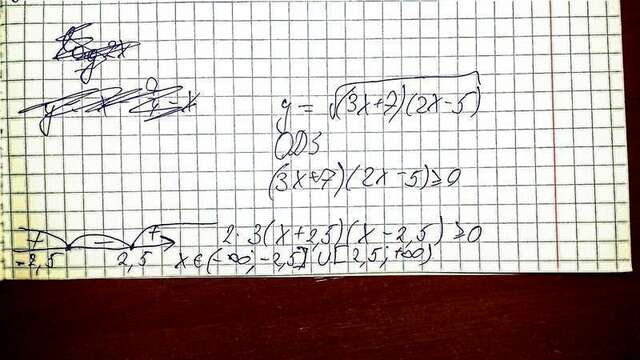 y = √(3x+7)(2x-5)
ОДЗ
(3x+7)(2x-5)≥0
+ - + 2·3(x+2,5)(x-2,5)≥0
-2,5 2,5 x∈(-∞;-2,5]∪[2,5;+∞)